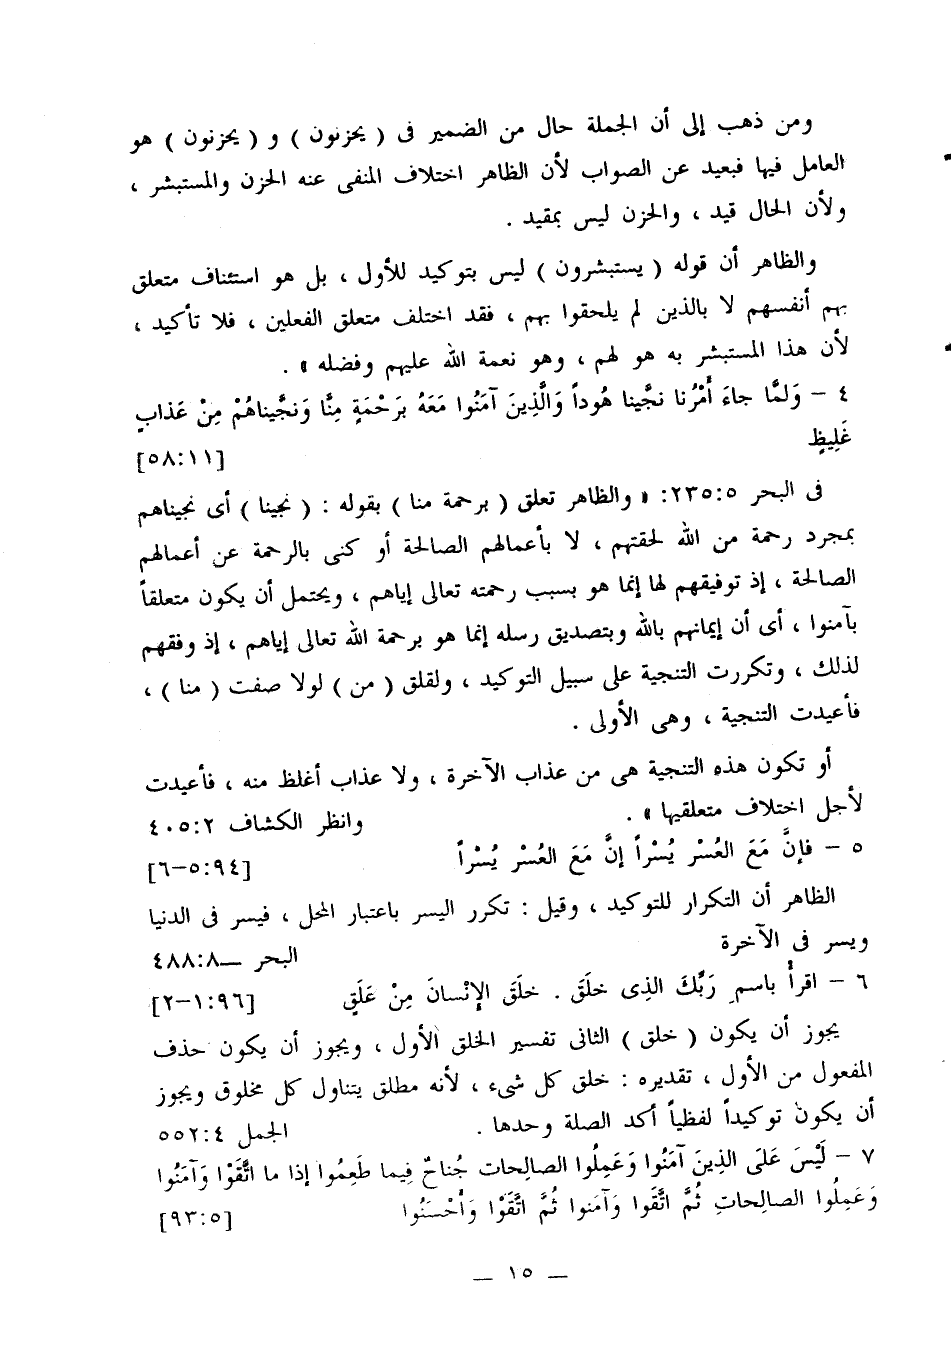 ومن ذهب إلى أن الجملة حال من الضمير فى ( يحزنون ) و ( يحزنون ) هو
العامل فيها فبعيد عن الصواب لأن الظاهر اختلاف المنفى عنه الحزن والمستبشر ،
ولأن الحال قيد ، والحزن ليس بمقيد .
والظاهر أن قوله ( يستبشرون ) ليس بتوكيد للأول ، بل هو استئناف متعلق
بهم أنفسهم لا بالذين لم يلحقوا بهم ، فقد اختلف متعلق الفعلين ، فلا تأكيد ،
لأن هذا المستبشر به هو لهم ، وهو نعمة الله عليهم وفضله » .
٤ – وَلَمَّا جاءَ أَمْرُنا نجَّينا هُوداً وَالَّذِينَ آمَنُوا مَعَهُ بَرَحْمَةٍ مِنَّا وَنَجَّيناهُمْ مِنْ عَذابٍ
غَلِيظٍ [٥٨:١١]
فى البحر ٢٣٥:٥: « والظاهر تعلق ( برحمة منا ) بقوله : ( نجينا ) أى نجيناهم
بمجرد رحمة من الله لحقتهم ، لا بأعمالهم الصالحة أو كنى بالرحمة عن أعمالهم
الصالحة ، إذ توفيقهم لها إنما هو بسبب رحمته تعالى إياهم ، ويحتمل أن يكون متعلقاً
بآمنوا ، أى أن إيمانهم بالله وبتصديق رسله إنما هو برحمة الله تعالى إياهم ، إذ وفقهم
لذلك ، وتكررت التنجية على سبيل التوكيد ، ولقلق ( من ) لولا صفت ( منا ) ،
فأعيدت التنجية ، وهى الأولى .
أو تكون هذه التنجية هى من عذاب الآخرة ، ولا عذاب أغلظ منه ، فأعيدت
لأجل اختلاف متعلقيها » . وانظر الكشاف ٤٠٥:٢
٥ – فإنَّ مَعَ العُسْر يُسْراً إنَّ مَعَ العُسْر يُسْراً [٥:٩٤–٦]
الظاهر أن التكرار للتوكيد ، وقيل : تكرر اليسر باعتبار المحل ، فيسر فى الدنيا
ويسر فى الآخرة البحر ــ٤٨٨:٨
٦ – اقرأْ باسمِ رَبِّكَ الذِى خلَقَ . خلَقَ الإِنْسانَ مِنْ عَلَقٍ [١:٩٦–٢]
يجوز أن يكون ( خلق ) الثانى تفسير الخلق الأول ، ويجوز أن يكون حذف
المفعول من الأول ، تقديره : خلق كل شىء ، لأنه مطلق يتناول كل مخلوق ويجوز
أن يكون توكيداً لفظياً أكد الصلة وحدها . الجمل ٥٥٢:٤
٧ – لَيْسَ عَلَى الذِينَ آمَنُوا وَعَمِلُوا الصالِحات جُناحٌ فِيما طَعِمُوا إذا ما اتَّقَوْا وَآمَنُوا
وَعَمِلُوا الصالِحاتِ ثُمَّ اتَّقَوا وَآمَنوا ثُمَّ اتَّقَوْا وَأحْسَنُوا [٩٣:٥]
— ١٥ —